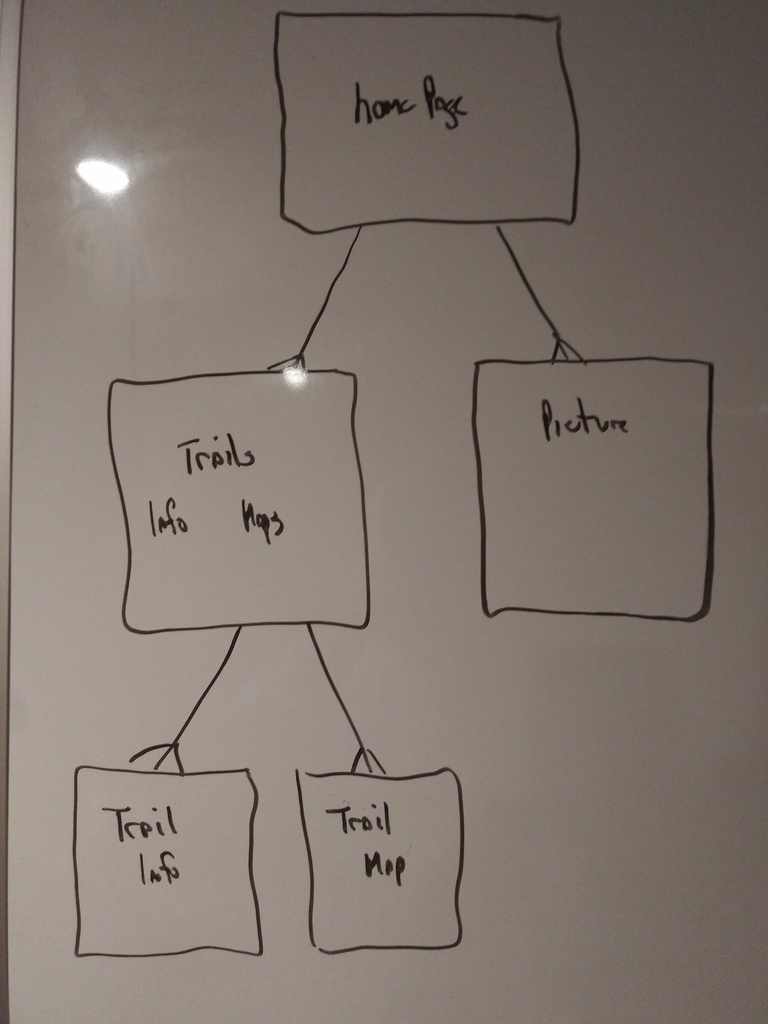 home Page
Trails
Info Maps
Picture
Trail
Info
Trail
Map